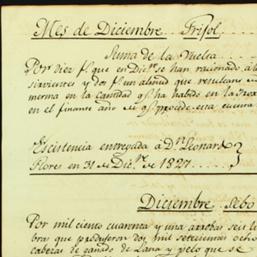 Mes de Diciembre Frisol
Suma de la Vuelta
Por diez f.s que en Dic.re se han racionado, a los
sirvientes y dos f.s un almud que resultaron de
merma en la cantidad q.e ha habido en la
en el finante año de q.e procede esta cuenta
Existencia entregada a D.n Leonardo
Flores en 31 de Dic.re de 1827
Diciembre Sebo
Por mil ciento cuarenta y una arrobas seis li
bras que produjeron dos mil setecientas ocho
cabezas de ganado de Lana y pelo que se